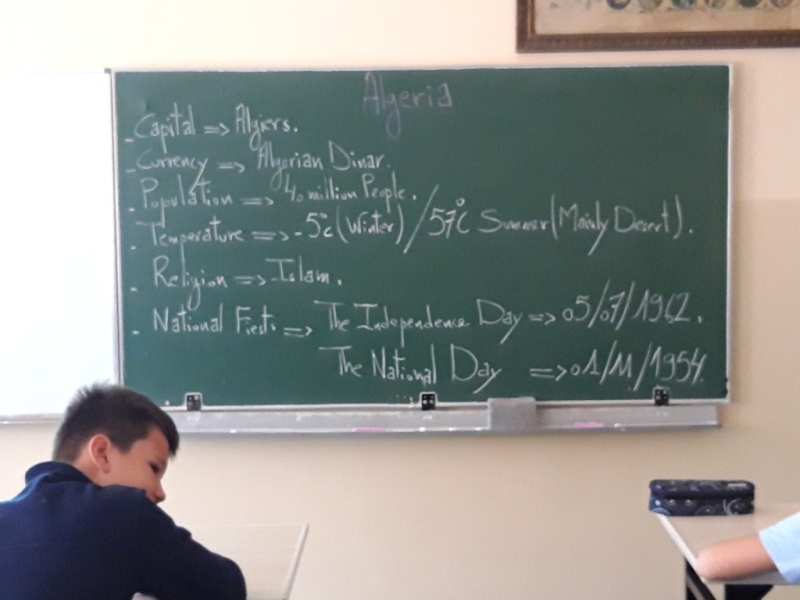 Algeria
- Capital => Algiers.
- Currency => Algerian Dinar.
- Population => 40 million People.
- Temperature => -5°c (Winter) / 57°C Summer (Mainly Desert).
- Religion => Islam.
- National Fiest. => The Independence Day => 05/07/1962.
The National Day => 01/11/1954.